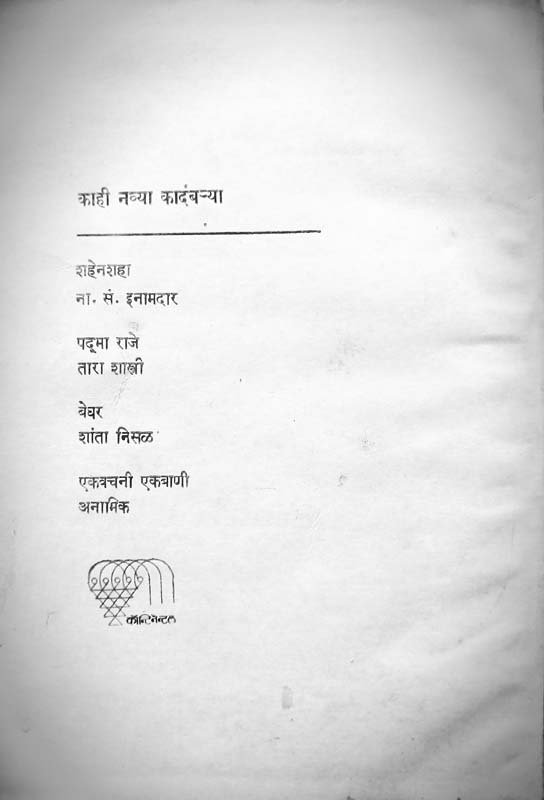 काही नव्या कादंबऱ्या
शहेनशहा
ना. सं. इनामदार
पद्‌मा राजे
तारा शास्त्री
बेघर
शांता निसळ
एकवचनी एकबाणी
अनामिक
कॉन्टिनेन्टल